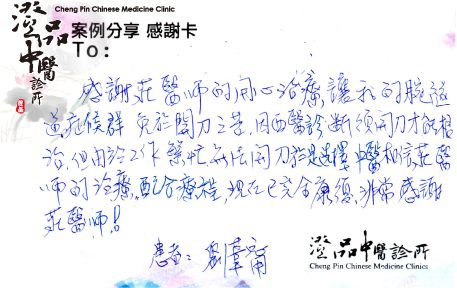 Cheng Pin Chinese Medicine Clinic
澄品中醫診所
案例分享 感謝卡
To：
感謝莊醫師的用心治療，讓我的腕隧
道症候群 免於開刀之苦，因西醫診斷須開刀才能根
治，但由於工作繁忙無法開刀於是選擇中醫和信莊醫
師的治療，配合療程，現在已完全康復，非常感謝
莊醫師！
患者：劉
澄品中醫診所
Cheng Pin Chinese Medicine Clinics